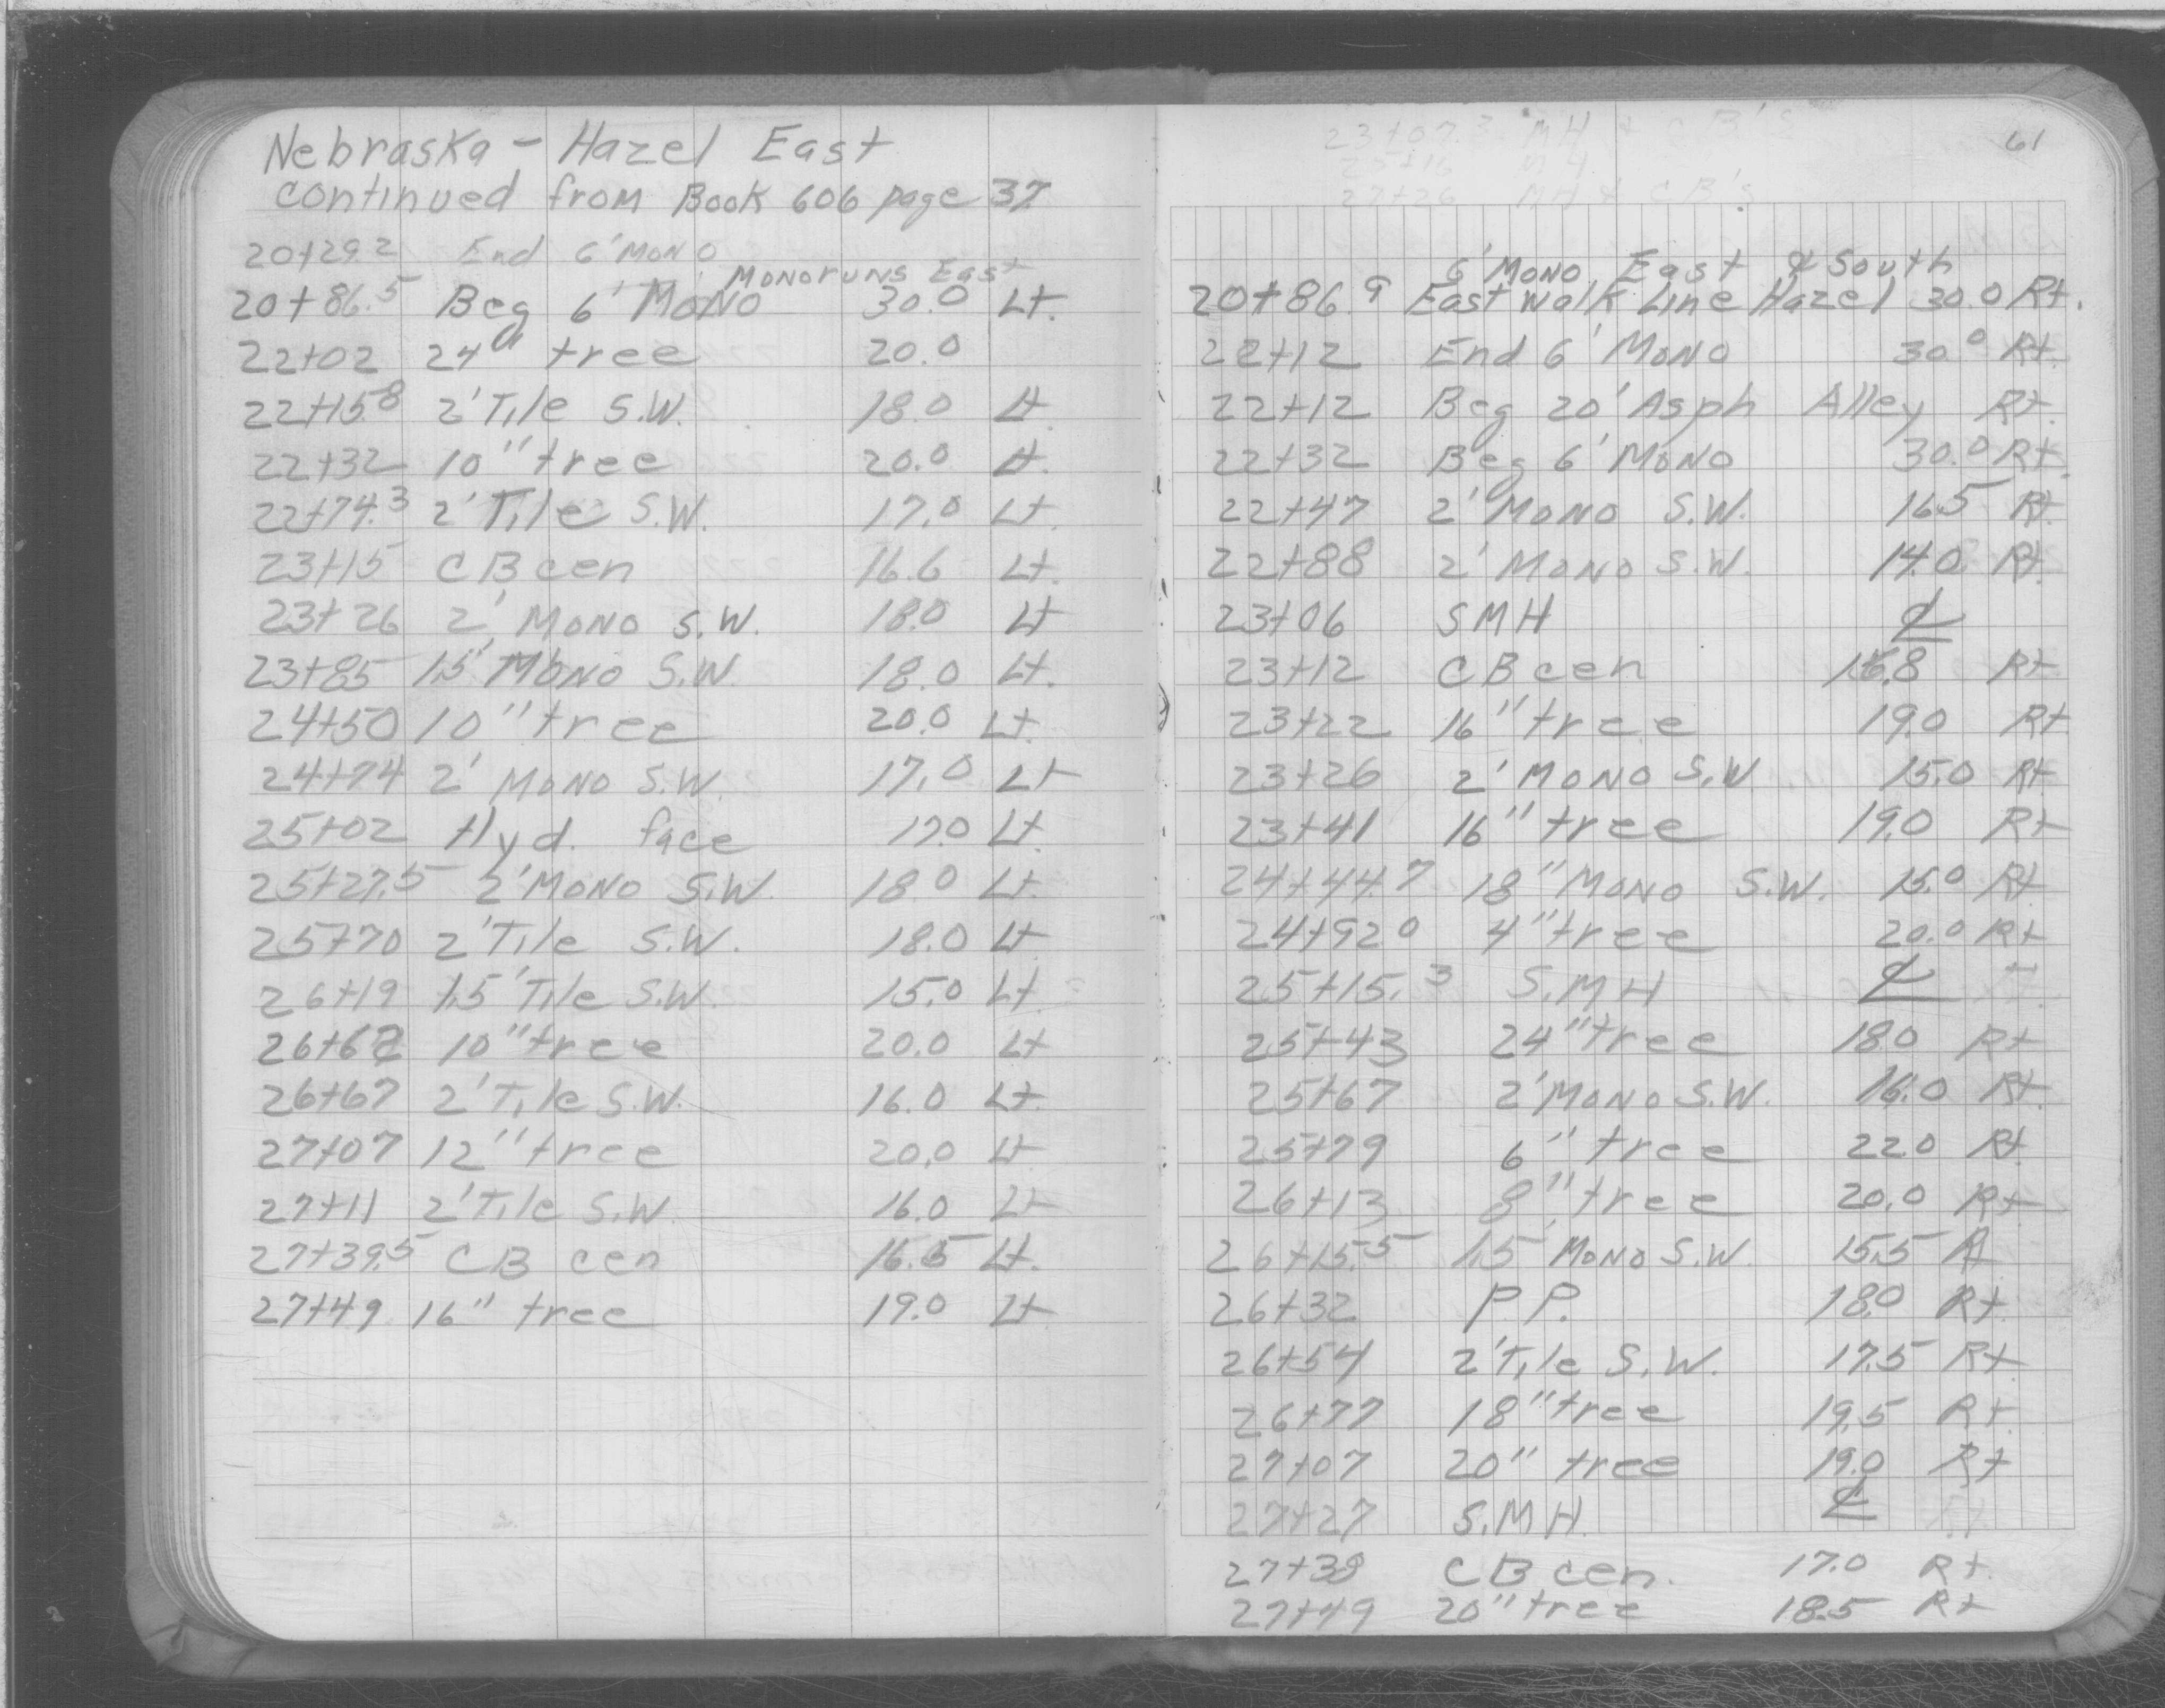 Nebraska - Hazel East
continued from Book 606 page 37
20+29.2 End 6' Mono
Mono runs East
20+86.5 Beg 6' Mono 30.0 Lt.
22+02 24" tree 20.0
22+15.8 2' Tile S.W. 18.0 Lt
22+32 10" tree 20.0 Lt.
22+74.3 2' Tile S.W. 17.0 Lt.
23+15 CB cen 16.6 Lt.
23+26 2' Mono S.W. 18.0 Lt
23+85 1.5' Mono S.W. 18.0 Lt.
24+50 10" tree 20.0 Lt.
24+74 2' Mono S.W. 17.0 Lt
25+02 Hyd. face 17.0 Lt.
25+27.5 2' Mono S.W. 18.0 Lt.
25+70 2' Tile S.W. 18.0 Lt
26+19 1.5' Tile S.W. 15.0 Lt.
26+62 10" tree 20.0 Lt
26+67 2' Tile S.W. 16.0 Lt.
27+07 12" tree 20.0 Lt
27+11 2' Tile S.W. 16.0 Lt
27+39.5 CB cen 16.5 Lt.
27+49 16" tree 19.0 Lt
23+07.3 MH & CB's
25+16 MH
27+26 MH & CB's
61
6' Mono East & South
20+86.9 East Walk Line Hazel 30.0 Rt.
22+12 End 6' Mono 30.0 Rt.
22+12 Beg 20' Asph Alley Rt.
22+32 Beg 6' Mono 30.0 Rt.
22+47 2' Mono S.W. 16.5 Rt.
22+88 2' Mono S.W. 14.0 Rt.
23+06 SMH ℄
23+12 CB cen 16.8 Rt
23+22 16" tree 19.0 Rt
23+26 2' Mono S.W 15.0 Rt
23+41 16" tree 19.0 Rt
24+44.7 18" Mono S.W. 15.0 Rt
24+92.0 4" tree 20.0 Rt
25+15.3 S.MH ℄
25+43 24" tree 18.0 Rt
25+67 2' Mono S.W. 16.0 Rt.
25+79 6" tree 22.0 Rt.
26+13 8" tree 20.0 Rt
26+15.5 1.5' Mono S.W. 15.5 Rt
26+32 P.P. 18.0 Rt.
26+54 2' Tile S.W. 17.5 Rt
26+77 18" tree 19.5 Rt.
27+07 20" tree 19.0 Rt
27+27 S.MH. ℄
27+38 CB cen. 17.0 Rt.
27+49 20" tree 18.5 Rt